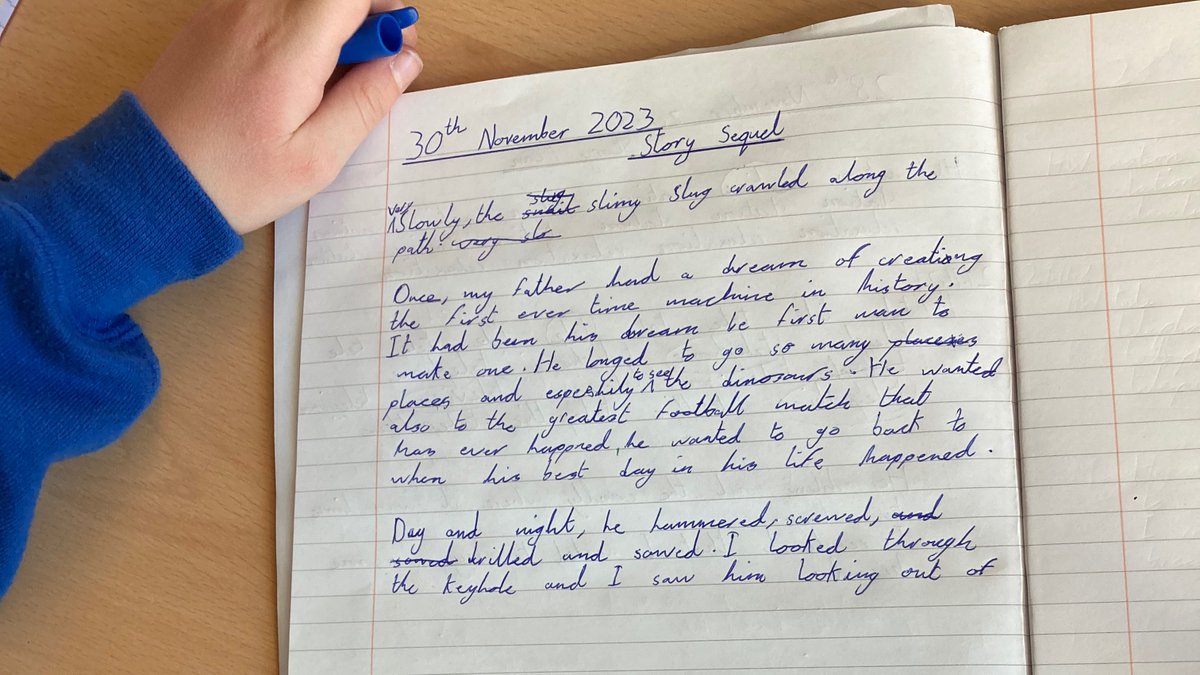 30th November 2023
Story Sequel
Very Slowly, the slug snail slimy slug crawled along the
path. very slo
Once, my father had a dream of creationg
the first ever time machine in history.
It had been his dream be first man to
make one. He longed to go so many placeses
places and espeshily to see the dinosours. He wanted
also to the greatest football match that
has ever happned, he wanted to go back to
when his best day in his life happened.
Day and night, he hammered, screwed, and
sawed drilled and sawed. I looked through
the keyhole and I saw him looking out of